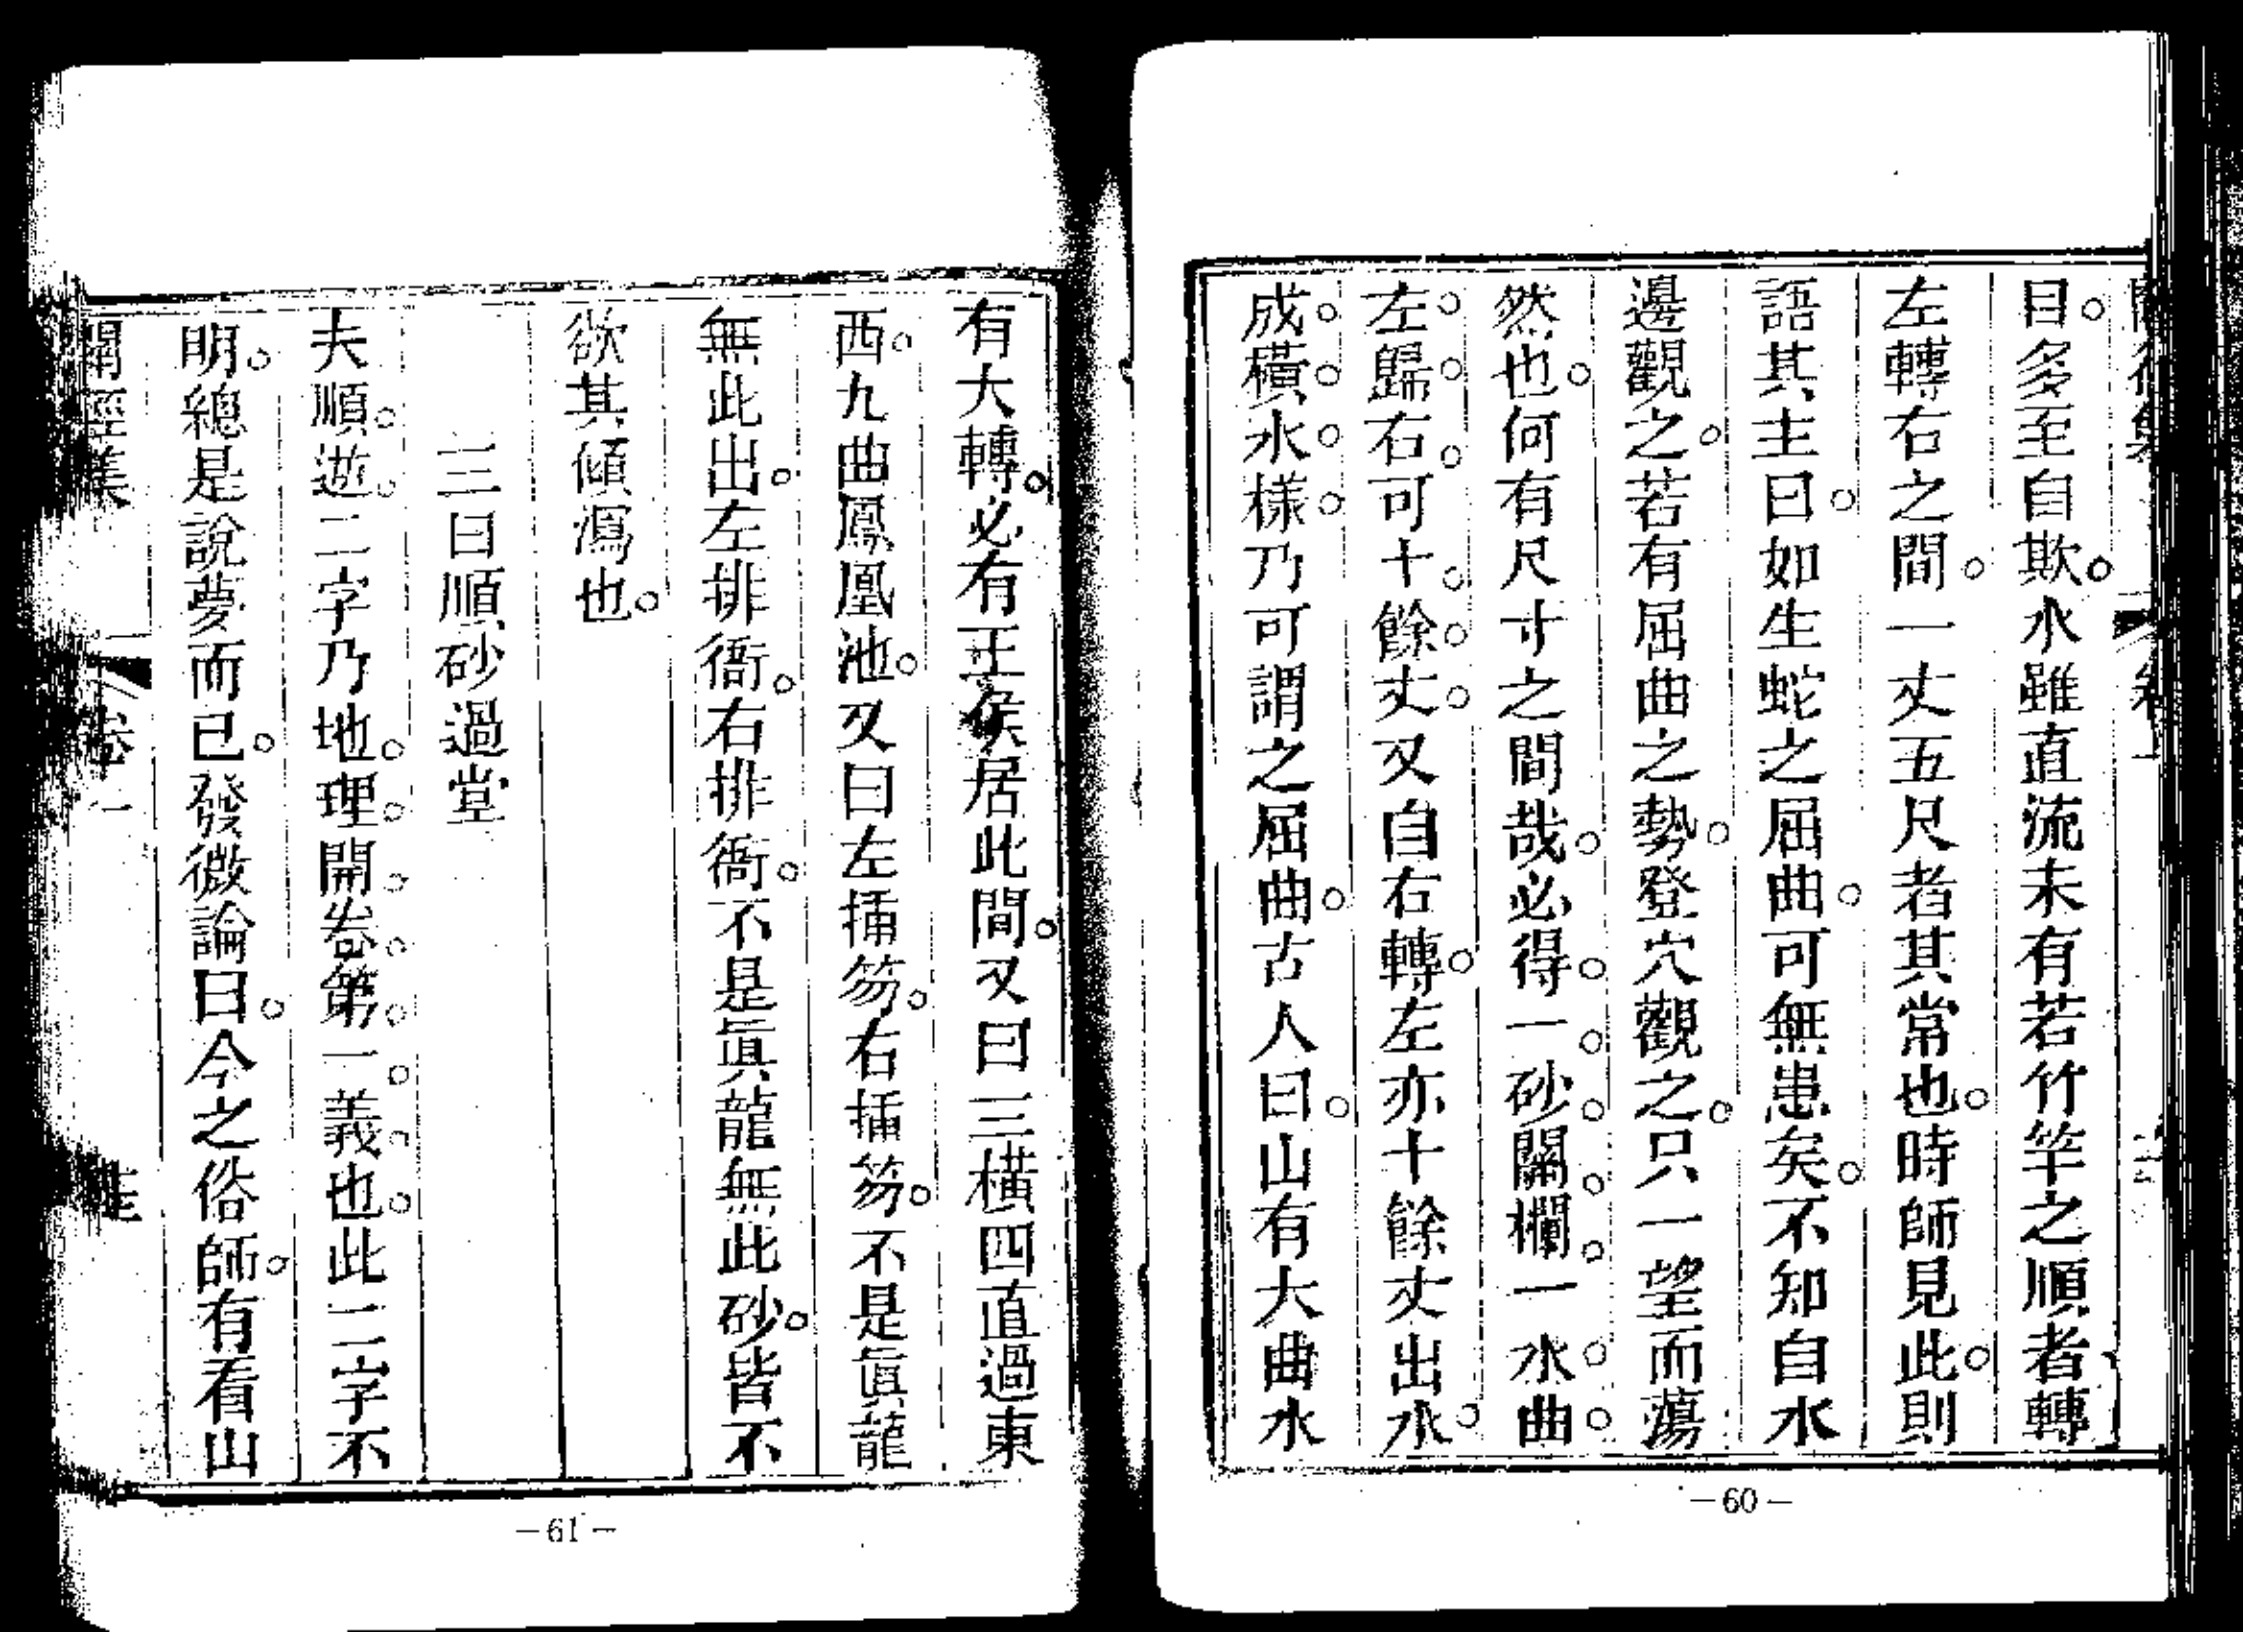 目。多至自欺。水雖直流未有若竹竿之順者轉
左轉右之間。一丈五尺者其常也。時師見此。則
語其主曰。如生蛇之屈曲。可無患矣。不知自水
邊觀之。若有屈曲之勢。登穴觀之。只一望而蕩
然也。何有尺寸之間哉。必得。一。砂。關。欄。一水。曲。
左。歸。右。可十。餘。丈。又自右轉。左亦十餘丈出水。
成。橫。水。樣。乃可謂之屈曲。古人曰。山有大曲水
—60—
有大轉。必有王侯居此間。又曰三橫四直過東
西。九曲鳳凰池。又曰左插笏。右插笏。不是眞龍
無此出。左排衙。右排衙。不是眞龍無此砂。皆不
欲其傾瀉也。
三曰順砂過堂
夫順。逆。二字乃地。理。開。卷。第。一。義。也。此二字不
明。總是說夢而已。發微論曰。今之俗師。有看山
卷一
—61—